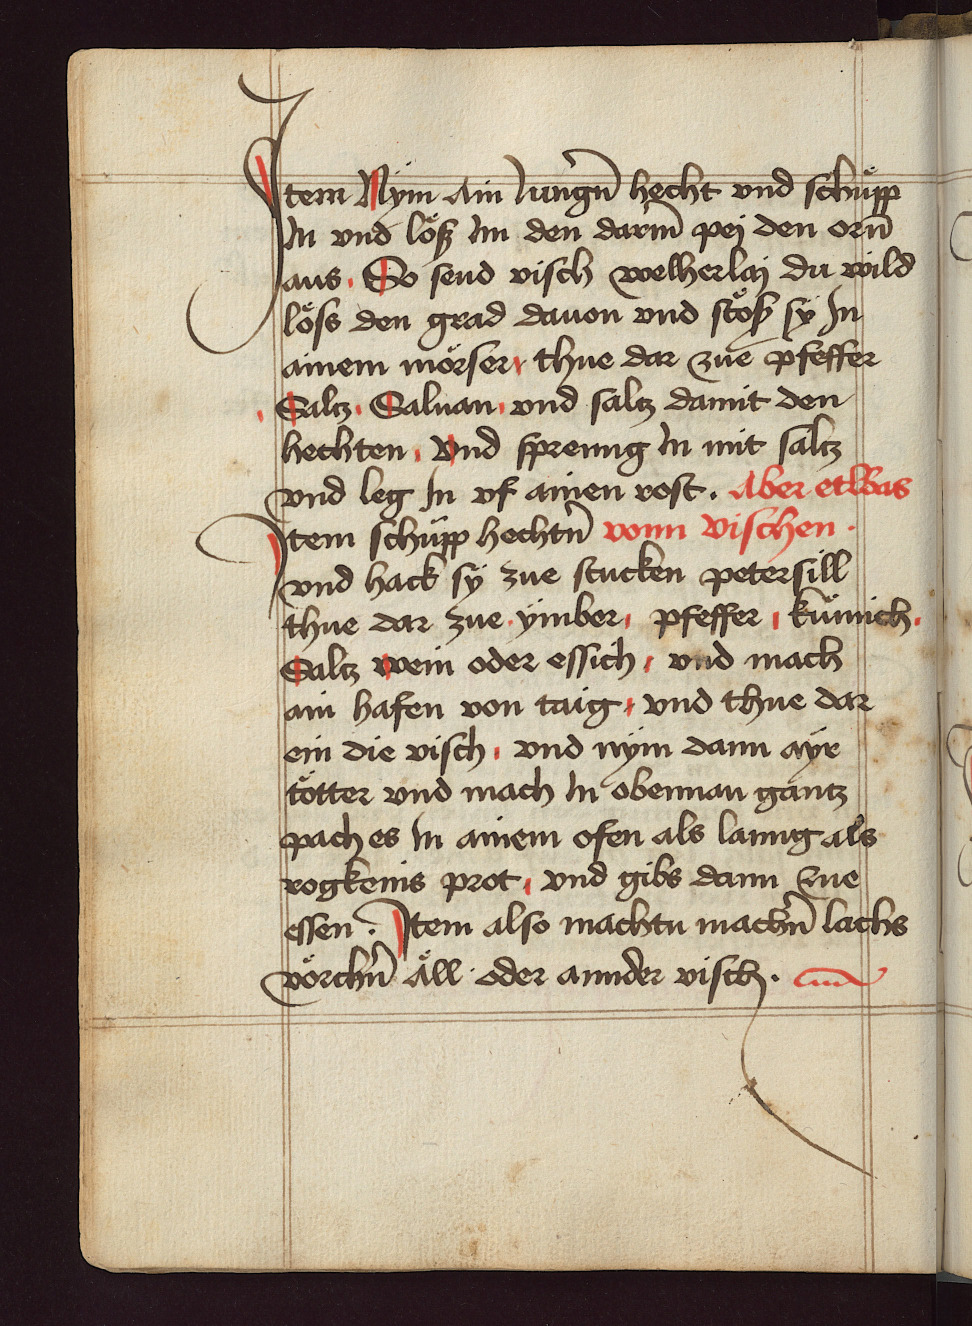 Item Nym ain Jungen̄ hecht vnd schüpp
In vnd löß Im den darm̄ pej den orn̄
aus. So send visch welherlaj du wild
löss den grad dauon vnd stöß sÿ In
ainem mörser, thue dar zue pfeffer
Saltz. Saluan. vnd saltz damit den
hechten. Vnd sprenng In mit saltz
vnd leg In vf ainen rost. Aber etwas
Item schüpp hechtn̄ vonn vischen.
vnd hack sÿ zue stucken petersill
thue dar zue ÿmber, pfeffer, kümich.
Saltz wein oder essich, vnd mach
ain hafen von taig, vnd thue dar
ein die visch, vnd nÿm dann aÿr
tötter vnd mach In obennan gantz
pach es In ainem ofen als lanng als
rogkenis prot, vnd gibs dann zue
essen. Item also machtu machn̄ lachs
vörchn̄ äll. oder annder visch.